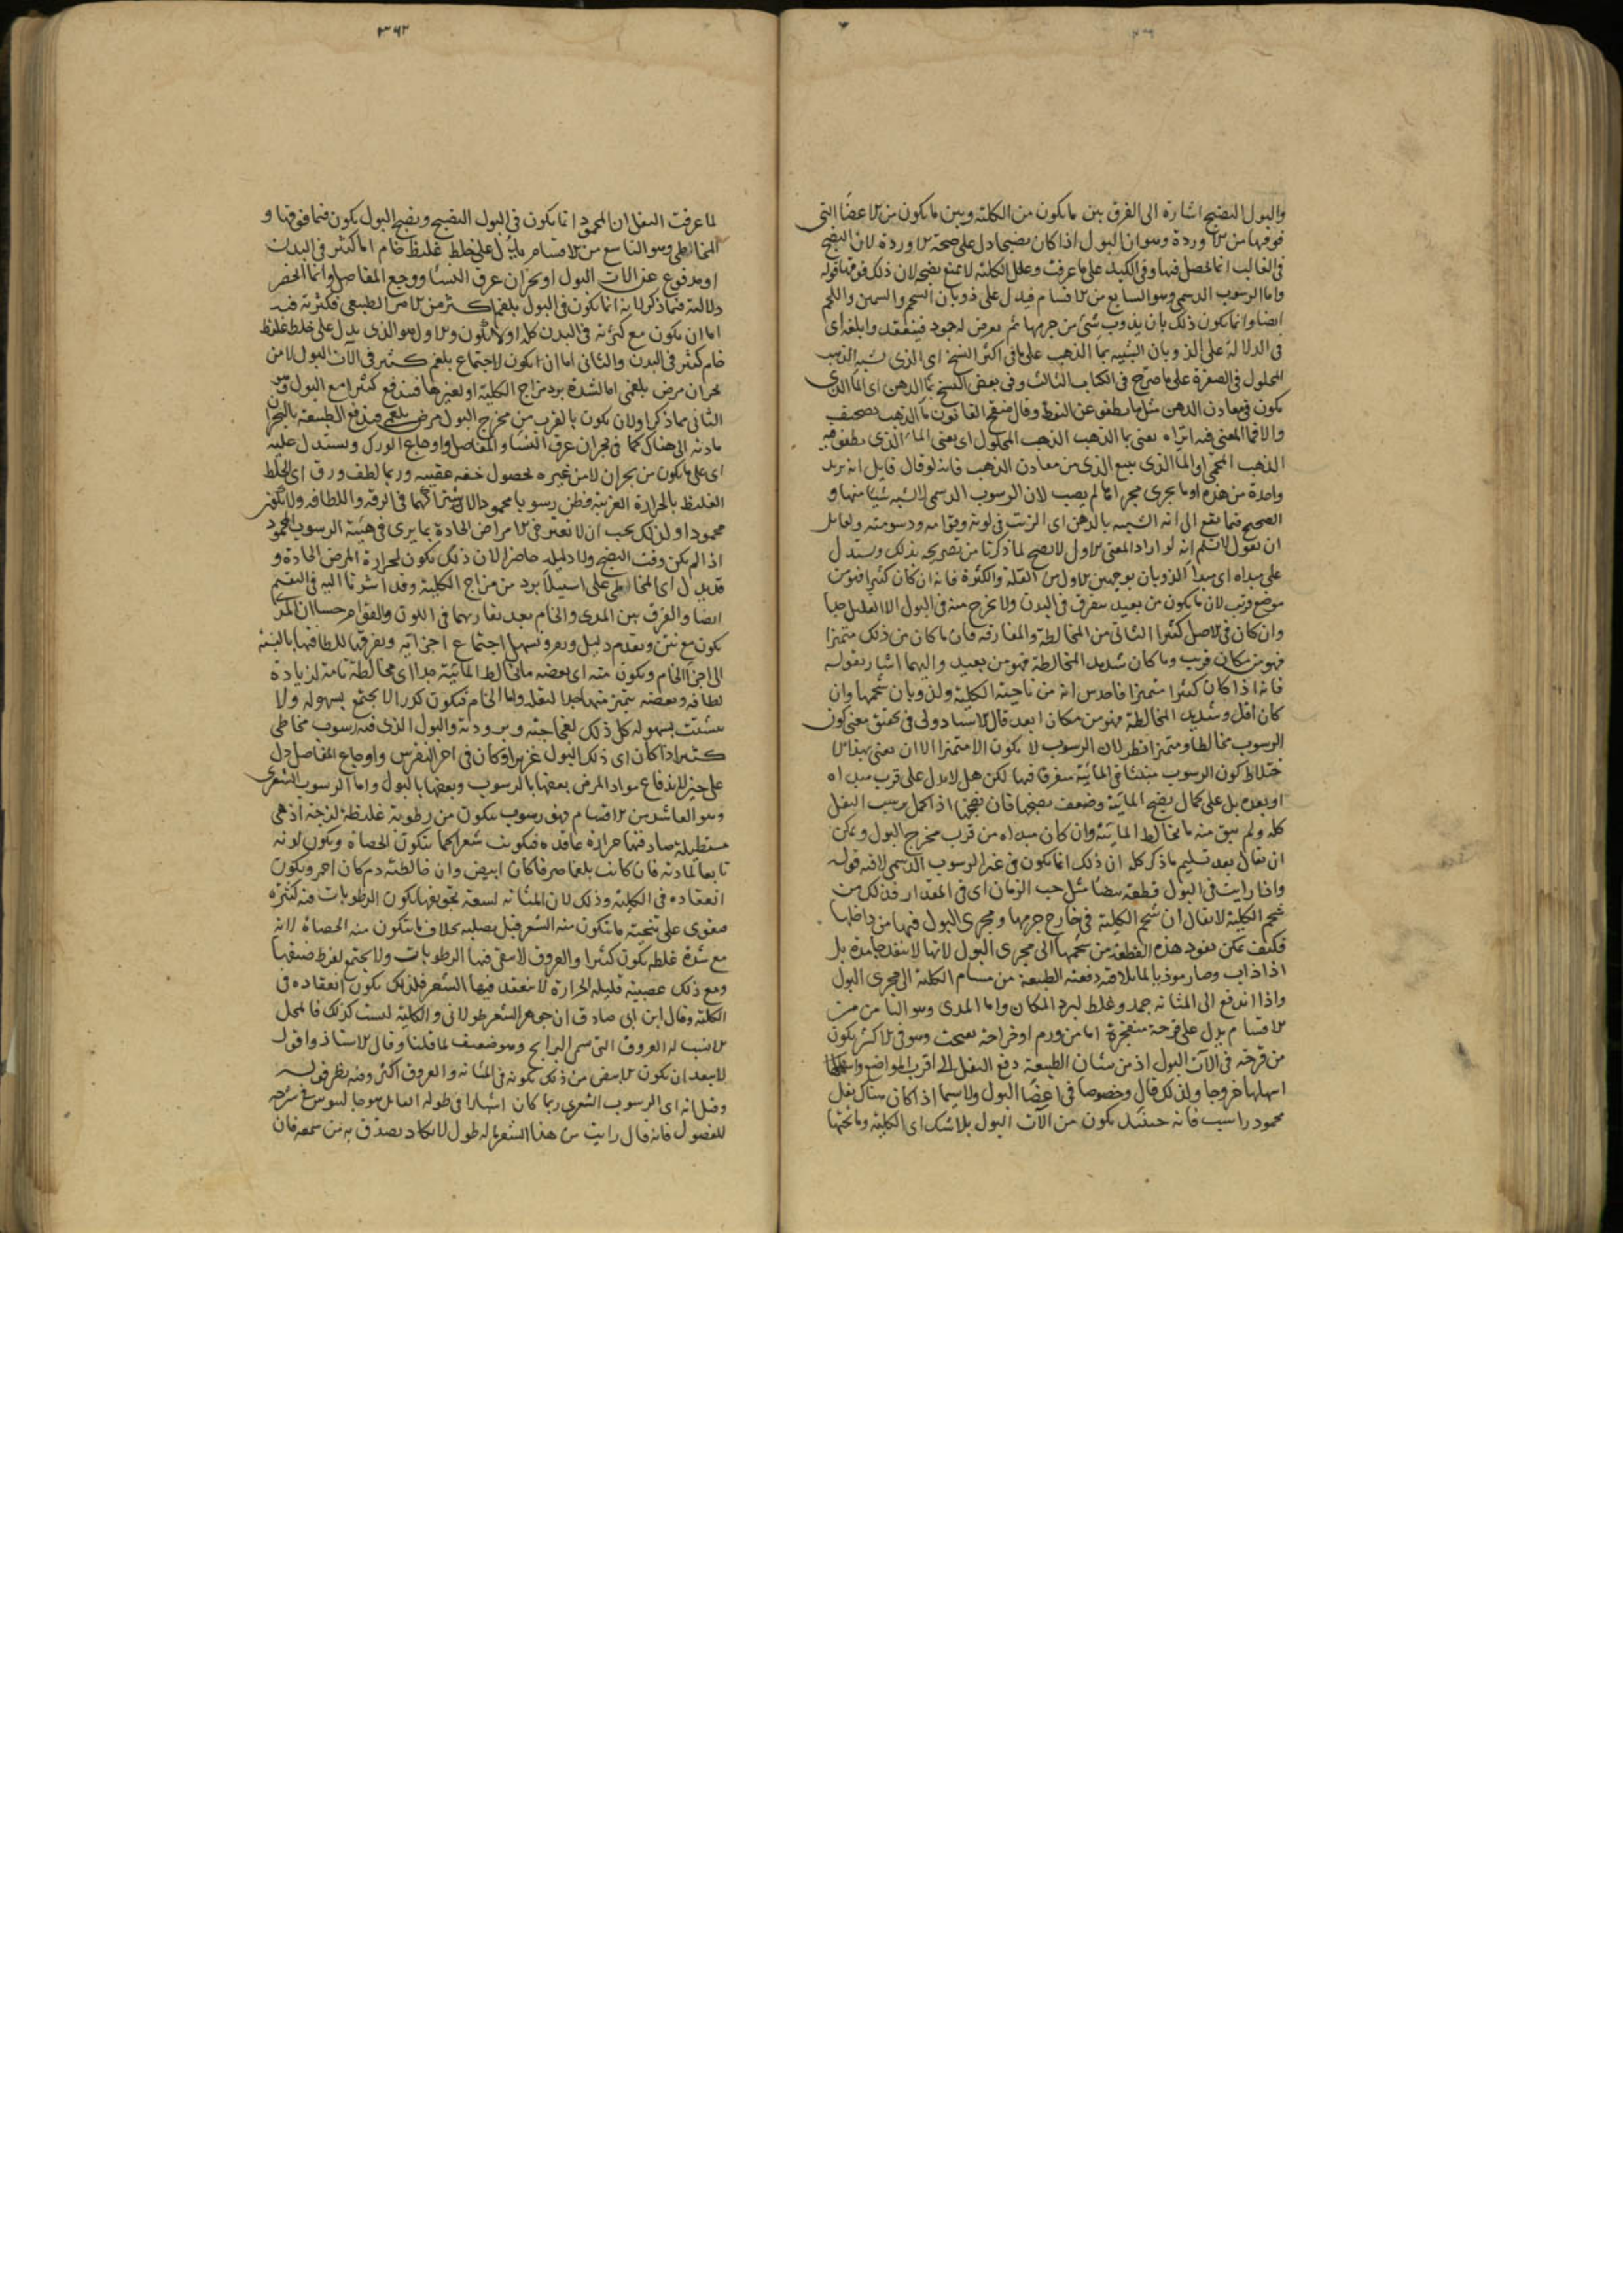 والبول النضيج اشارة الى الفرق بين ما يكون من الكلية وبين ما يكون من الاعضا التى
فوقها من الاوردة وهو ان البول اذا كان نضيجا دل على صحة الاوردة لان النضج
فى الغالب انما يحصل فيها وفى الكبد على ما عرفت وعلل الكلية لا تمنع نضجه لان ذلك فوقها قوله
واما الرسوب الدسمى وهو السابع من الاقسام فيدل على ذوبان الشحم والسمين واللحم
ايضا وانما يكون ذلك بان يذوب شئ من جرمها ثم يعرض له جمود فينعقد وابلغه اى
فى الدلالة على الذوبان الشبيه بما الذهب على ما فى اكثر النسخ اى الذى شبه الذهب
المحلول فى الصفرة على ما صرح فى الكتاب الثالث وفى بعض النسخ بما الدهن اى الما الذى
يكون فى معادن الدهن مثل ما يطفو عن النفط وقال منقح القانون ما الذهب تصحيف
والا فما المعنى فيه اتراه يعنى بما الذهب الذهب المحلول اى يعنى الما الذى يطفو فيه
الذهب المحمى او الما الذى ينبع الذى من معادن الذهب فانه لو قال قايل انه يريد
واحدة من هذه او ما يجرى مجراها لم يصب لان الرسوب الدسمى لا يشبه شيئا منها و
الصحيح فيما يقع الى انه الشبيه بالدهن اى الزيت فى لونه وقوامه ودسومته ولقايل
ان يقول لا نسلم انه لو اراد المعنى الاول لا يصح لما ذكرنا من تصريحه بذلك ويستدل
على مبداه اى مبدا الذوبان بوجهين الاول من القلة والكثرة فانه ان كان كثيرا فهو من
موضع قريب لان ما يكون من بعيد يتفرق فى البدن ولا يخرج منه فى البول الا القليل جدا
وان كان فى الاصل كثيرا الثانى من المخالطة والمفارقة فان ما كان من ذلك متميزا
فهو من مكان قريب وما كان شديد المخالطة فهو من بعيد واليهما اشار بقوله
فانه اذا كان كثيرا متميزا فاحدس انه من ناحية الكلية ولذوبان شحمها وان
كان اقل وشديد المخالطة فهو من مكان ابعد قال الاستاد ولى فى تحقق معنى كون
الرسوب مخالطا ومتميزا نظر لان الرسوب لا يكون الا متميزا الا ان يعنى بهذا الا
ختلاط كون الرسوب منبثا فى المائية متفرقا فيها لكن هل لا يدل على قرب مبداه
او بعده بل على كمال نضج المائية وضعف نضجها فان نضجها اذا كمل يرسب الثفل
كله ولم يبق منه ما يخالط المائية وان كان مبداه من قرب مخرج البول ويمكن
ان يقال بعد تسليم ما ذكر كله ان ذلك انما يكون فى غير الرسوب الدسمى لا فيه قوله
واذا رايت فى البول قطعة بيضا مثل حب الرمان اى فى المقدار فذلك من
شحم الكلية لا يقال ان شحم الكلية فى خارج جرمها ومجرى البول فيها من داخلها
فكيف يمكن نفوذ هذه القطعة من شحمها الى مجرى البول لانها لا تنفذ جامدة بل
اذا ذاب وصار موذيا لما يلاقيه دفعته الطبيعة من مسام الكلية الى مجرى البول
واذا اندفع الى المثانة جمد وغلظ لبرد المكان واما المدى وهو الثامن من
الاقسام يدل على قرحة منفجرة اما من ورم او خراجة نضجت وهو فى الاكثر يكون
من قرحة فى الات البول اذ من شان الطبيعة دفع الثفل الى اقرب المواضع
اسهلها خروجا ولذلك قال وخصوصا فى اعضا البول ولا سيما اذا كان هناك ثفل
محمود راسب فانه حينئذ يكون من الات البول بلا شك اى الكلية وما تحتها
٣٦٣
لما عرفت الثفل ان المحمود انما يكون فى البول النضيج ونضج البول يكون فيما فوقها و
المخاطى وهو التاسع من الاقسام يدل على خلط غليظ خام اما كثير فى البدن
او مدفوع عن الات البول او بحران عرق النسا ووجع المفاصل وانما انحصر
دلالته فيما ذكر لانه انما يكون فى البول بلغم اكثر من الامر الطبيعى فكثرته فيه
اما ان يكون مع كثرته فى البدن كله او لا يكون والاول هو الذى يدل على خلط غليظ
خام كثير فى البدن والثانى اما ان يكون لاجتماع بلغم كثير فى الات البول لا من
بحران مرض بلغمى اما لشدة برد مزاج الكلية او لغيرها فيندفع كثيرا مع البول وهو
الثانى مما ذكر او لان يكون بالقرب من مخرج البول مرض بلغمى فيدفع الطبيعة بالبحران
مادته الى هناك كما فى بحران عرق النسا والمفاصل واوجاع الورك ويستدل عليه
اى على ما يكون من بحران لا من غيره لحصول خفه عقيبه وربما لطف ورق اى الخلط
الغليظ بالحرارة الغريبة فظن رسوبا محمودا لاشتراكهما فى الرقة واللطافة ولا يكون
محمودا ولذلك يجب ان لا تغتر فى الامراض الحادة بما يرى فى هيئة الرسوب المحمود
اذا لم يكن وقت النضج ولا دليله حاضرا لان ذلك يكون لحرارة المرض الحادة و
قد يدل اى المخاطى على استيلا برد من مزاج الكلية وقد اشرنا اليه فى التقسيم
ايضا والفرق بين المدى والخام بعد تقاربهما فى اللون والقوام حسا ان المدى
يكون مع نتن وتقدم دليل ورم ويسهل اجتماع اجزائه وتفرقها للطافتها بالنسبة
الى اجزا الخام ويكون منه اى بعضه ما يخالط المائية جدا اى مخالطة تامة لزيادة
لطافة وبعضه يتميز منها جدا لثقله واما الخام فيكون كدرا لا يجتمع بسهولة ولا
يتشتت بسهوله كل ذلك لفجاجته وبرودته والبول الذى فيه رسوب مخاطى
كثير اذا كان اى ذلك البول غزيرا وكان فى اخر النقرس واوجاع المفاصل دل
على خير لاندفاع مواد المرض بعضها بالرسوب وبعضها بالبول واما الرسوب الشعرى
وهو العاشر من الاقسام فهو رسوب يتكون من رطوبة غليظة لزجة اذ هى
مستطيلة صادفتها حرارة عاقدة فيكونت شعرا كما يتكون الحصاة ويكون لونه
تابعا لمادته فان كانت بلغما صرفا كان ابيض وان خالطته دم كان احمر ويكون
انعقاده فى الكلية وذلك لان المثانة لسعة تجويفها يكون الرطوبات فيه كثيرة
مع شدة غلظه يكون كثيرا والعروق لا يبقى فيها الرطوبات ولا يجتمع لفرط ضيقها
ومع ذلك عصبية قليلة الحرارة لا ينعقد فيها الشعر فلذلك يكون انعقاده فى
الكلية وقال ابن ابى صادق ان جوهر الشعر طولانى والكلية ليست كذلك فالمحل
الانسب له العروق التى تسمى البرابخ وهو ضعيف لما قلنا وقال الاستاذ واقول
لا يبعد ان يكون الابيض من ذلك تكونه فى المثانة والعروق اكثر وفيه نظر قوله
وقيل انه اى الرسوب الشعرى ربما كان اشبارا فى طوله القايل هو جالينوس فى شرحه
للفصول فانه قال رايت من هذا الشعر ما له طول لا يكاد يصدق به من سمعه فان